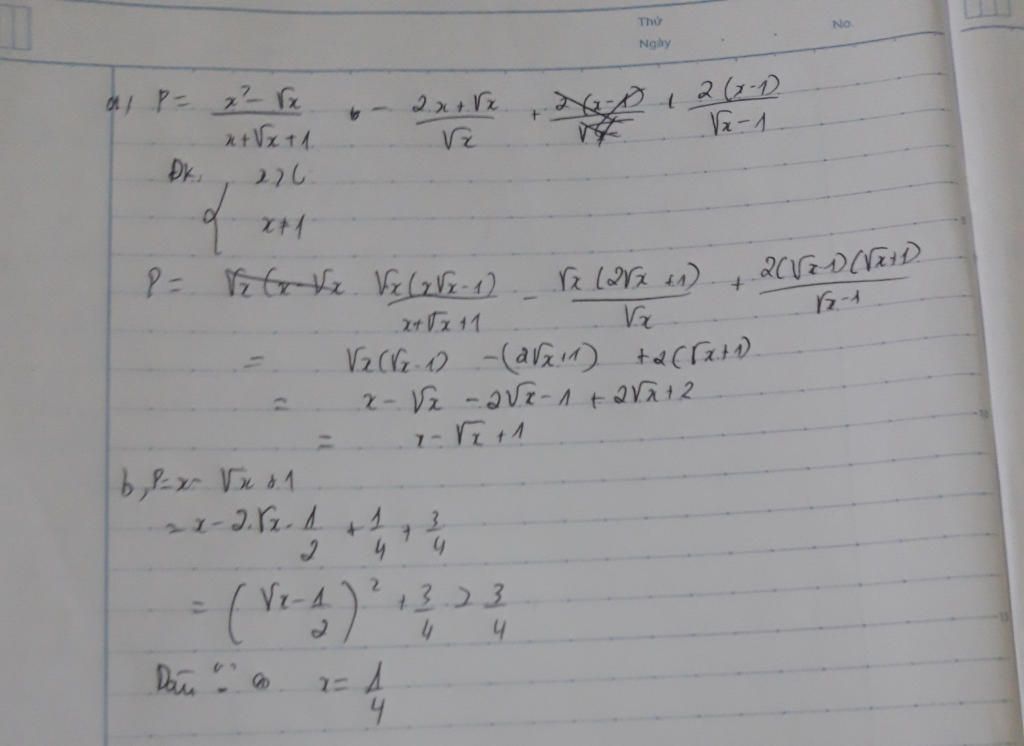 Thứ
No.
Ngày
a, P = \frac{x² - √x}{x + √x + 1} - \frac{2x + √x}{√x} + \frac{2(x-1)}{√x - 1}
Đk,
x ≠ 1
P = \frac{√x(x√x - 1)}{x + √x + 1} - \frac{√x(2√x + 1)}{√x} + \frac{2(√x-1)(√x+1)}{√x - 1}
= √x(√x - 1) - (2√x + 1) + 2(√x + 1)
= x - √x - 2√x - 1 + 2√x + 2
= x - √x + 1
b, P = x - √x + 1
= x - 2.√x.\frac{1}{2} + \frac{1}{4} + \frac{3}{4}
= (√x - \frac{1}{2})² + \frac{3}{4} ≥ \frac{3}{4}
Dấu "=" x = \frac{1}{4}